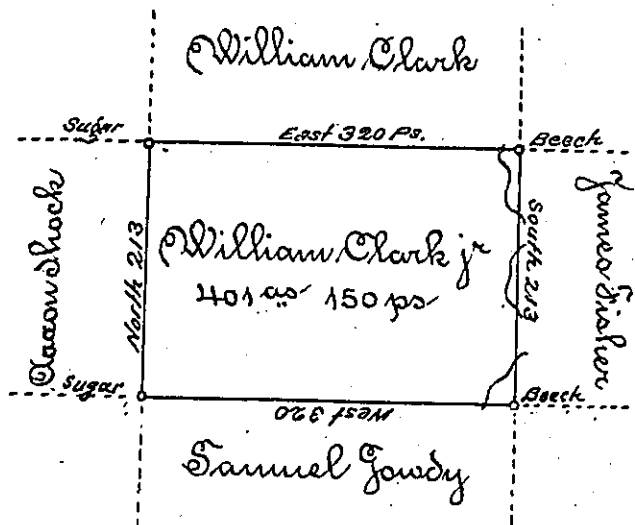 William Clark
Sugar
East 320 Ps.
Beech
Aaron Shock
North 213
William Clark jr
401 as 150 ps
South 213
James Fisher
Sugar
West 320
Beech
Samuel Gowdy